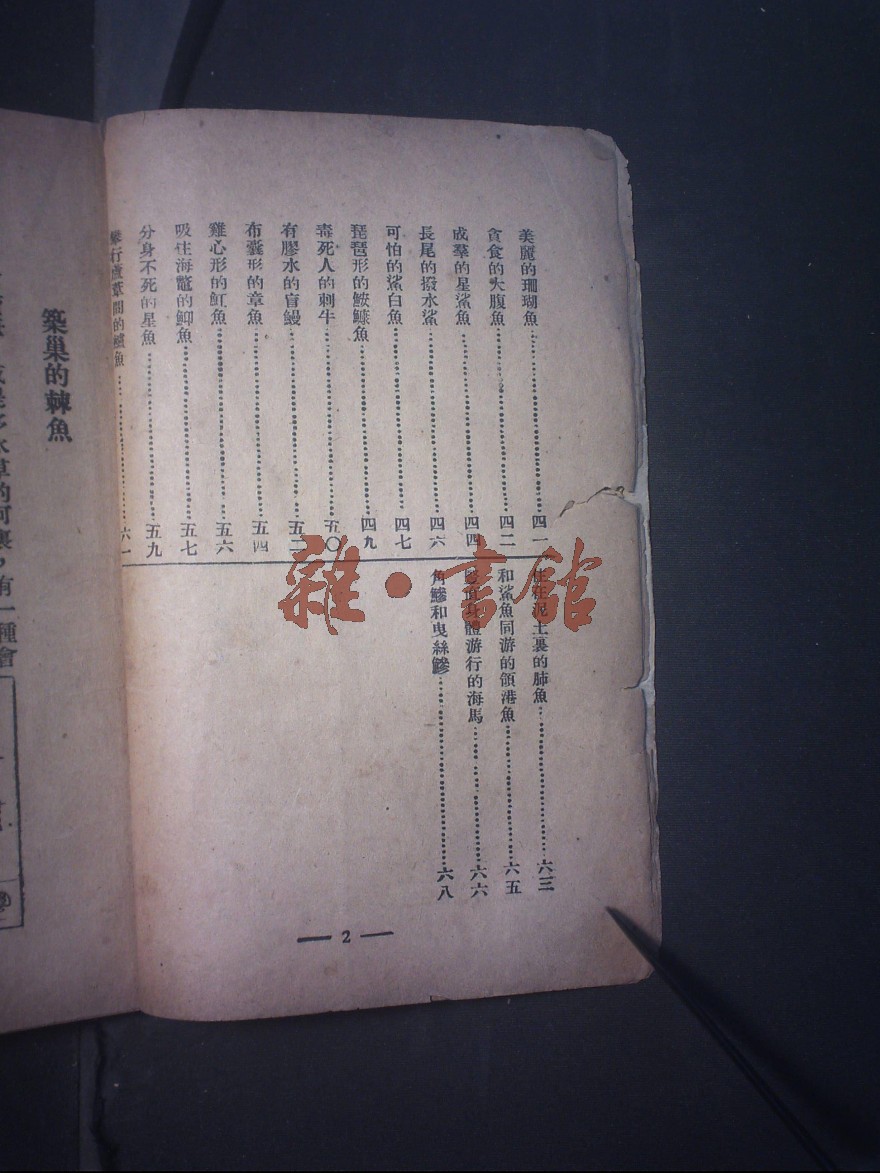 美麗的珊瑚魚 四一
貪食的大腹魚 四二
成羣的星鯊魚 四四
長尾的撥水鯊 四六
可怕的鯊白魚 四七
琵琶形的鮟鱇魚 四九
毒死人的刺牛 五〇
有膠水的盲鰻 五二
布囊形的章魚 五四
雞心形的魟魚 五六
吸住海鼈的鮣魚 五七
分身不死的星魚 五九
行葦間的魚 六一
住在泥土裏的肺魚 六三
和鯊魚同游的領港魚 六五
身體游行的海馬 六六
角鰺和曳絲鰺 六八
2
雜·書館
築巢的棘魚
水草的河裏，有一種會